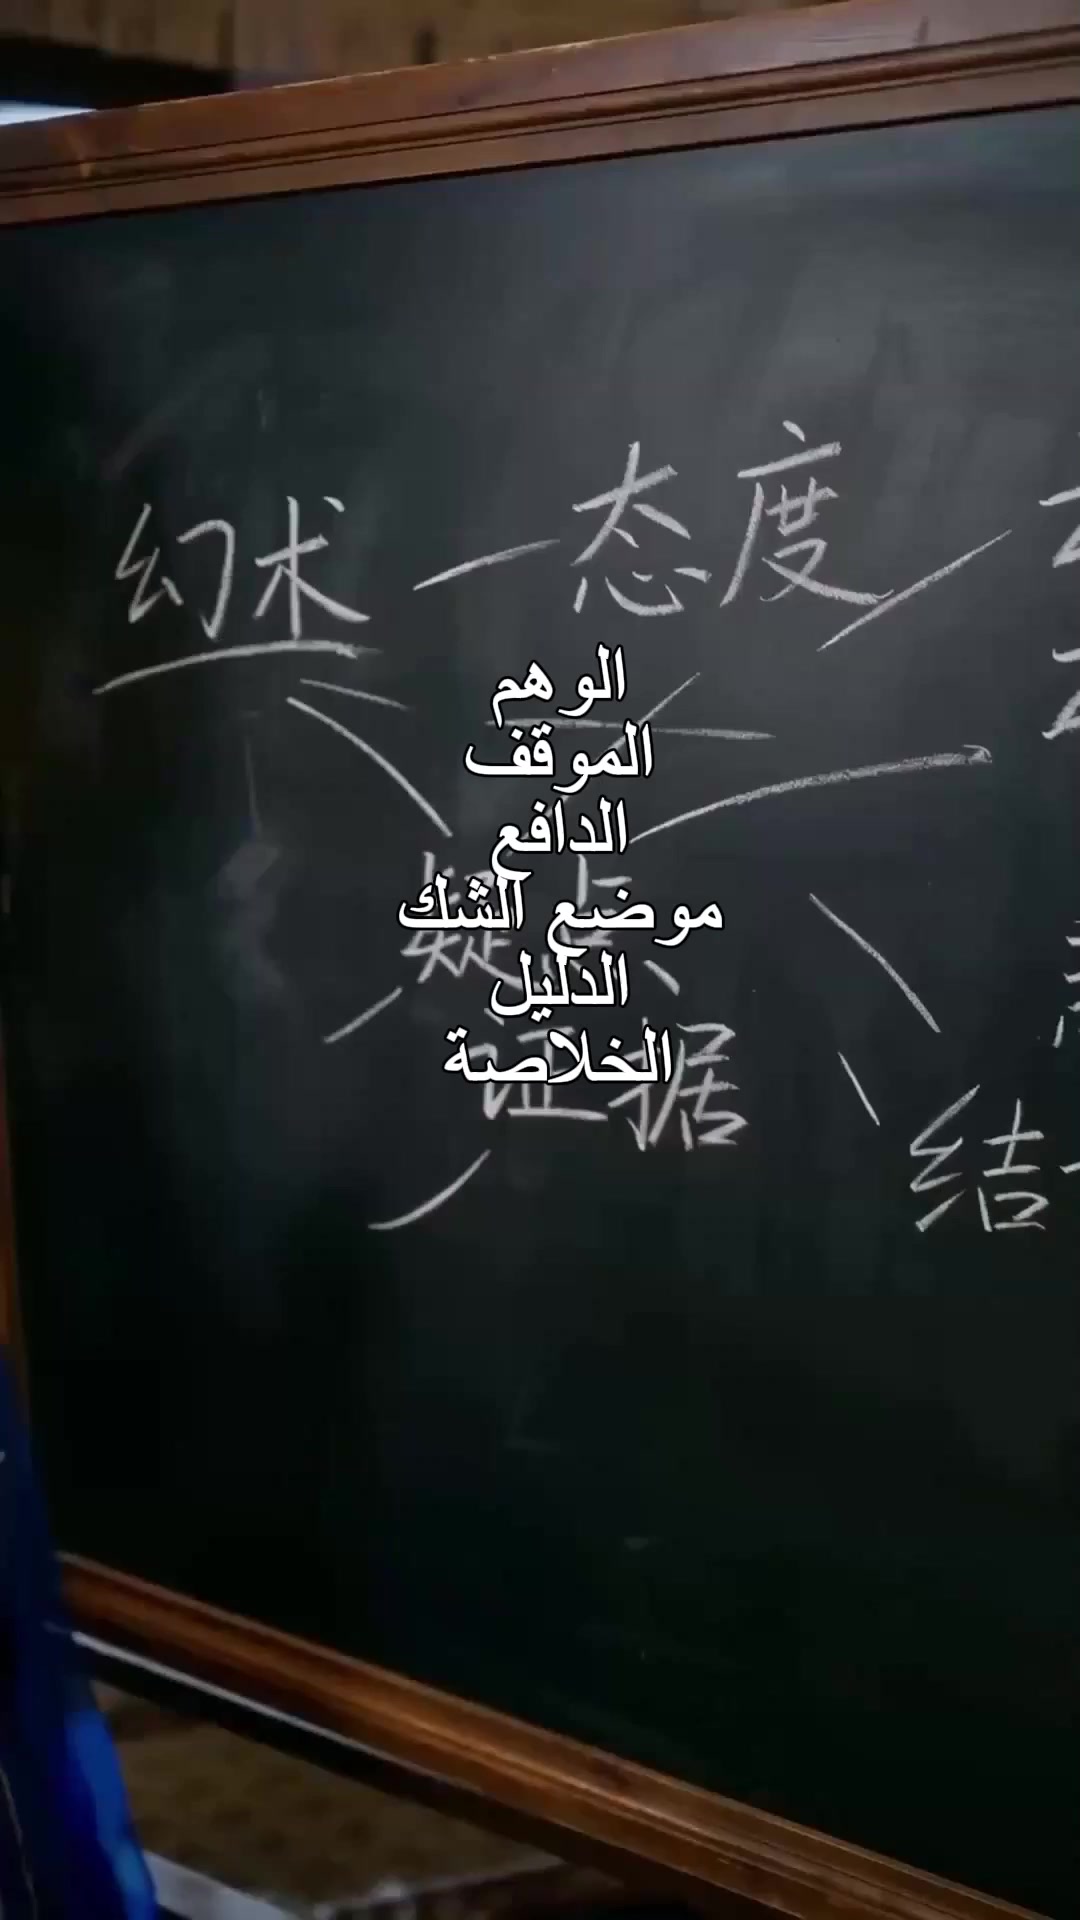 幻术 态度
الوهم
الموقف
الدافع
موضع الشك
الدليل
الخلاصة
疑点
证据
结